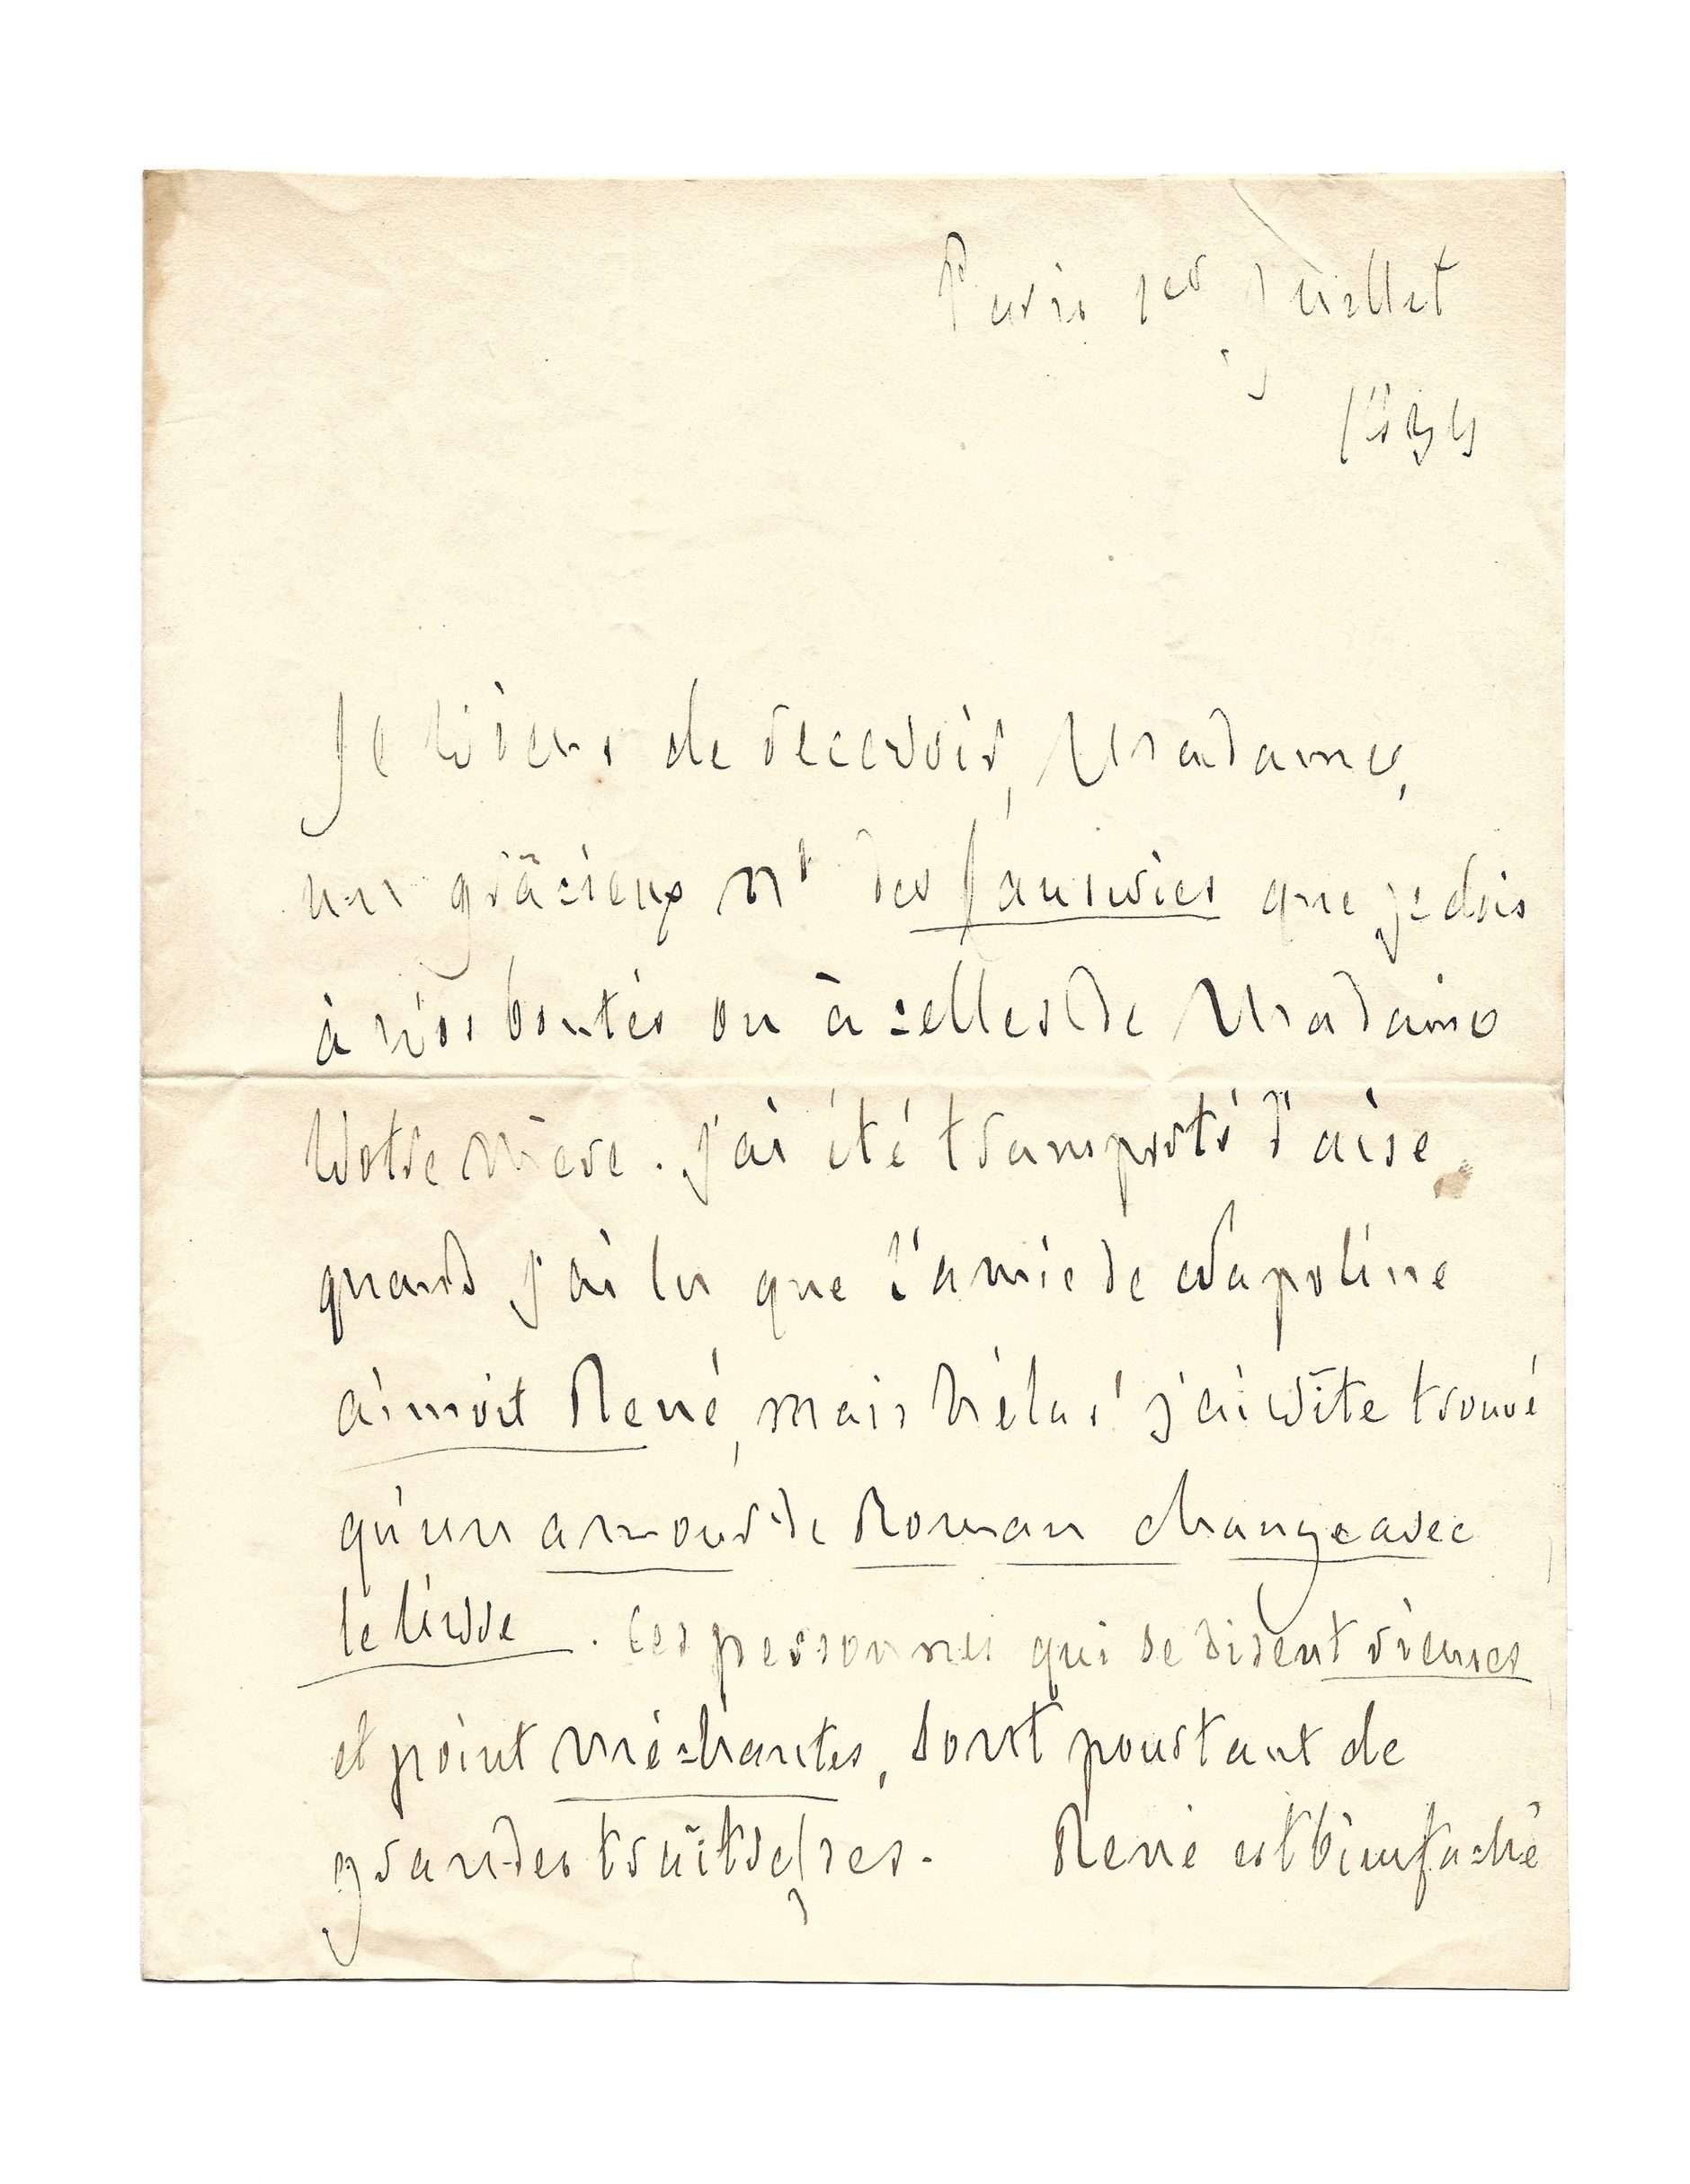 Paris 1er Juillet
1834
Je viens de recevoir, Madame,
un gracieux N° des Causeries que je dois
à vos bontés ou à celles de Madame
Votre mère. j'ai été transporté d'aise
quand j'ai lu que l'amie de Napoline
aimoit René, mais hélas! j'ai vîte trouvé
qu'un amour de Roman change avec
le livre. Les personnes qui se disent rieuses
et point méchantes, sont pourtant de
grandes traîtresses. René est bien fâché